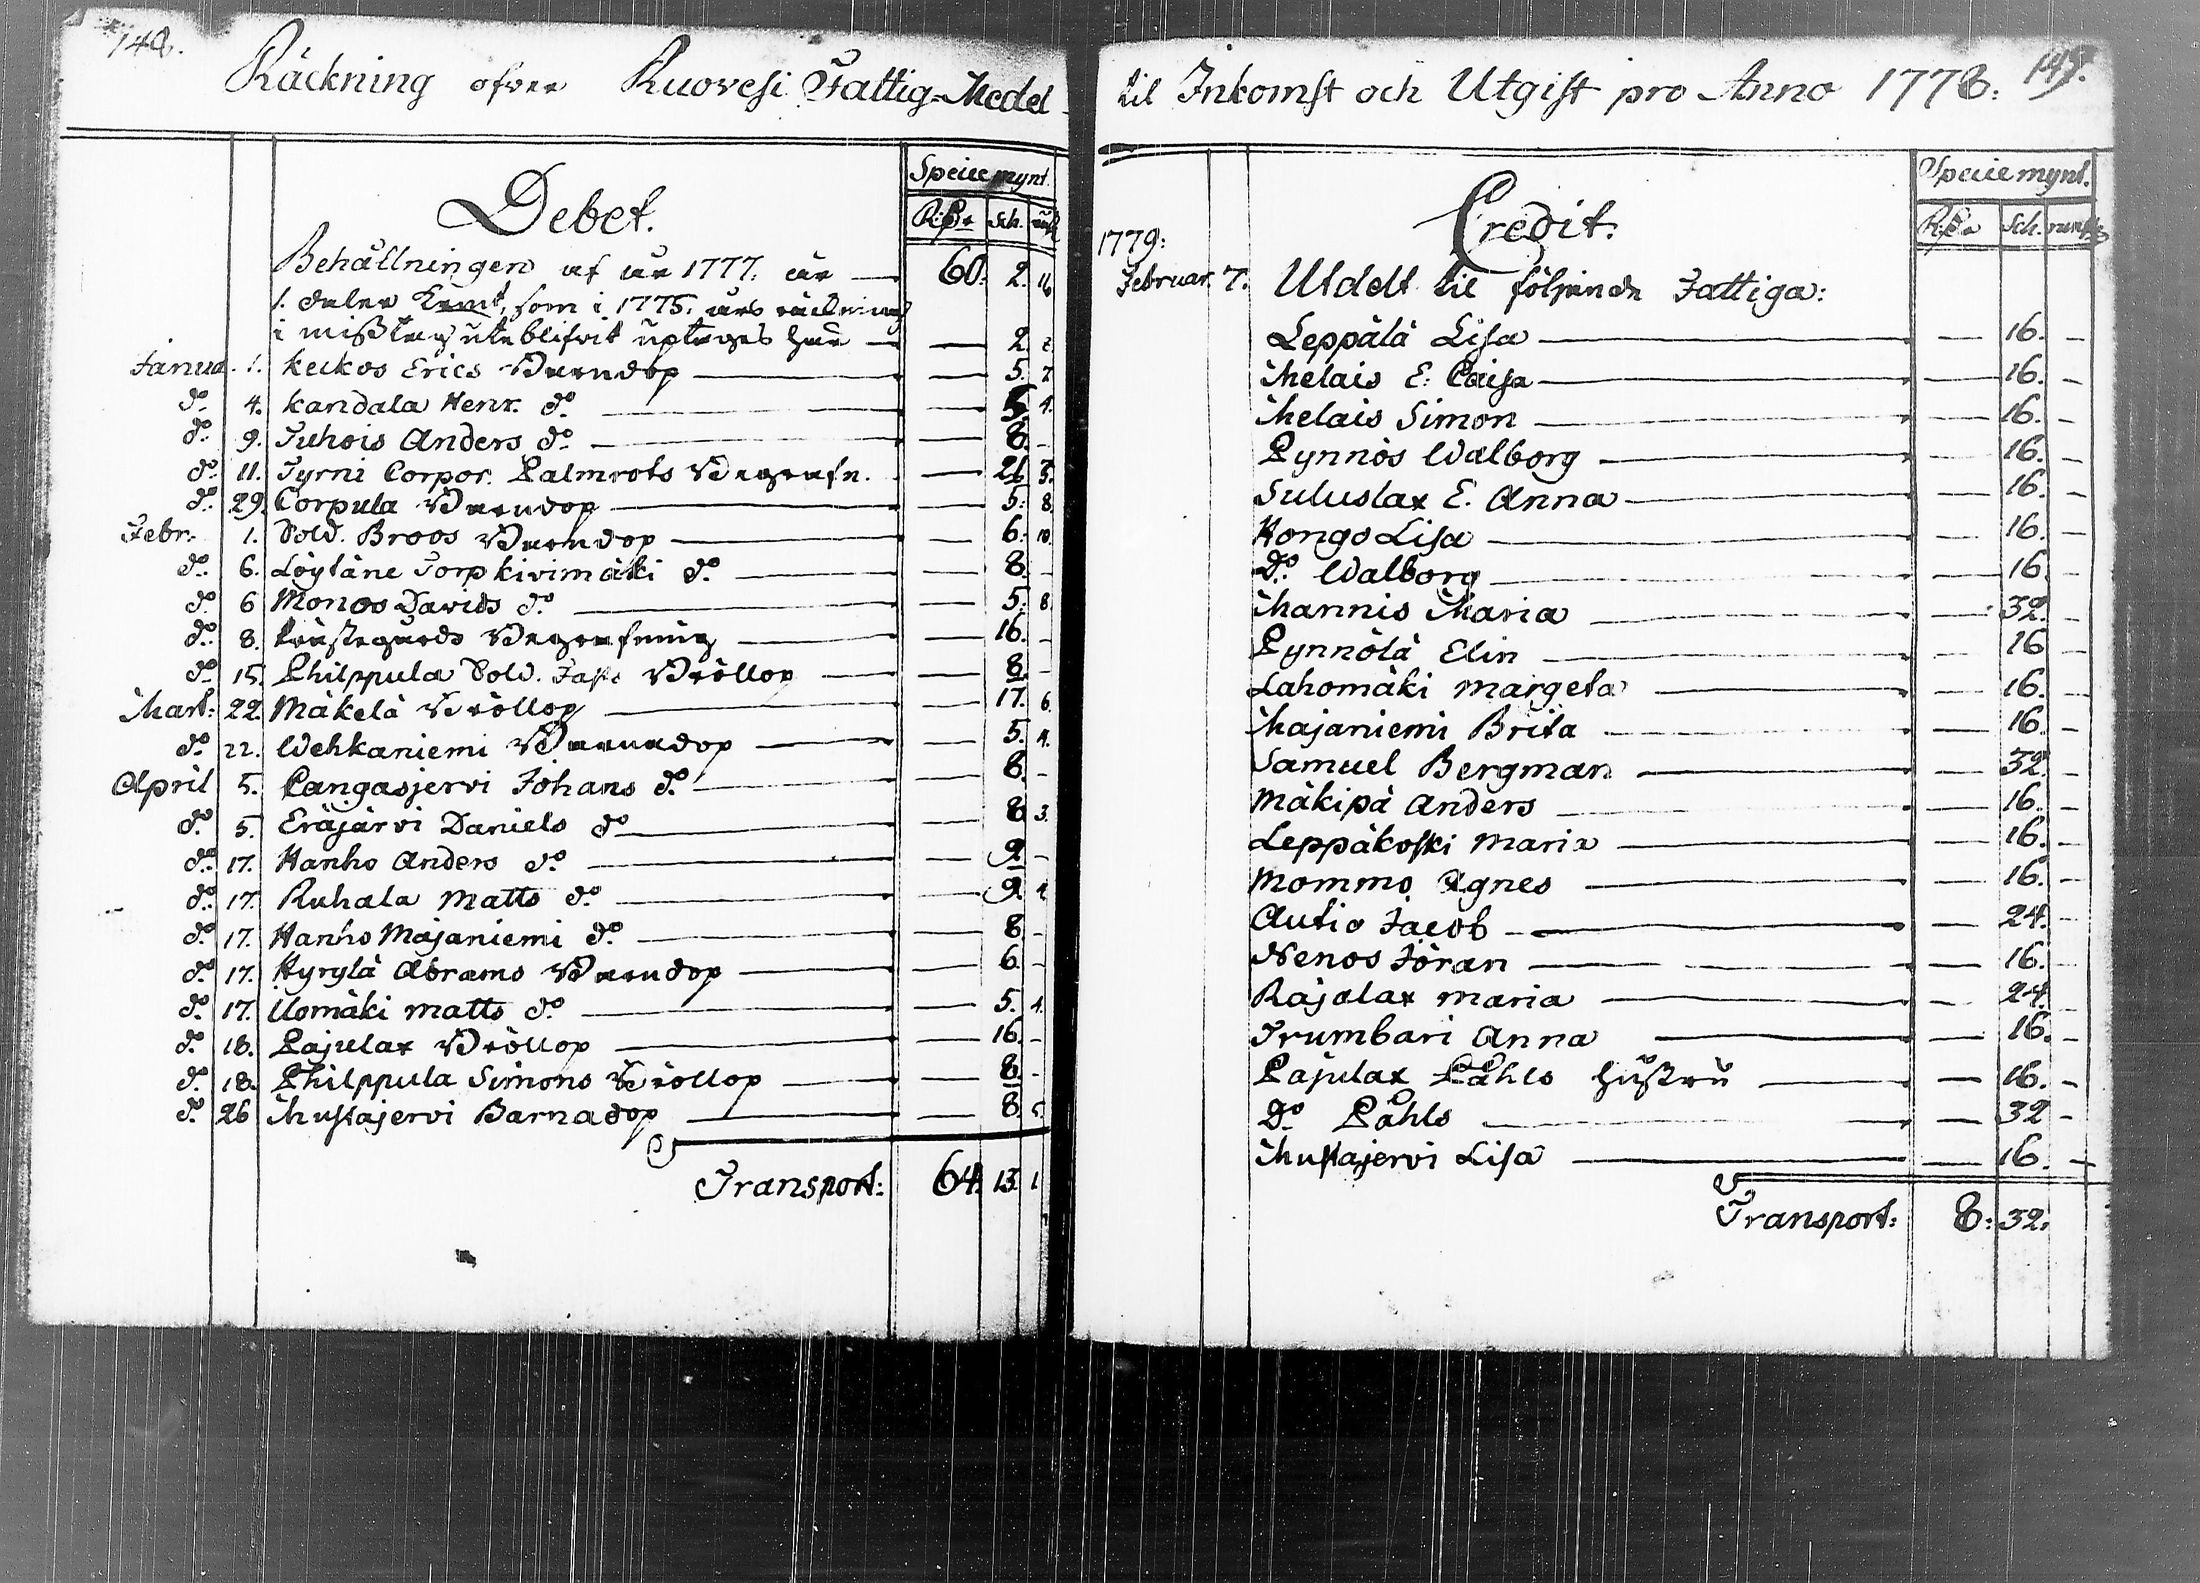 148.
Räckning öfver Ruovesi Fattig-Medel
Debet.
Specie mynt.
R:dr Sch. runst
Behållningen af år 1777. är — 60. 2. 16
1. daler Kmt, som i 1775. års räckning
i misstag uteblifvit uptages här — — 2. 2.
Janua. 1. Keikos Erics Barndop — — 5. 7
do 4. Kandala Henr. do — — 5 4.
do 9. Juhois Anders do — — 8. -
do 11. Tyrni Corpor. Palmrots Begrafn. — 26 5.
do 29. Corpula Barndop — — 5. 8.
Febr. 1. Sold. Broos Barndop — — 6. 10.
do 6. Löytäne Torp kivimäki do — — 8. -
do 6 Monos Davids do — — 5. 8.
do 8. Prästegårds Begrafning — — 16. -
do 15. Philppula Sold. Bröllop — — 8. -
Mart: 22. Mäkelä Bröllop — — 17. 6.
do 22. Wehkaniemi Barnadop — — 5. 4.
April 5. Pangasjervi Johans do — — 8. -
do 5. Eräjärvi Daniels do — — 8 3.
do 17. Hanho Anders do — — 9 -
do 17. Ruhala Matts do — — 9. 4
do 17. Hanho Majaniemi do — — 8 -
do 17. Hyrylä Abrams Barndop — — 6. -
do 17. Uomäki Matts do — — 5. 4.
do 18. Pajulax Bröllop — — 16. -
do 18. Philppula Simons Bröllop — — 8 -
do 26 Mustajervi Barnadop — — 8. 5.
Transport: 64. 13. 1
149.
til Inkomst och Utgift pro Anno 1778.
Credit.
Specie mynt.
R:dr Sch. runst
1779:
Februar. 7. Utdelt til följande Fattiga:
Leppälä Lisa — — 16. -
Melais E. Caisa — — 16. -
Melais Simon — — 16. -
Pynnös Walborg — — 16. -
Suluslax E. Anna — — 16. -
Hongo Lisa — — 16. -
Do Walborg — — 16. -
Mannis Maria — — 32. -
Pynnölä Elin — — 16 -
Lahomäki Margeta — — 16. -
Majaniemi Brita — — 16. -
Samuel Bergman — — 32. -
Mäkipä Anders — — 16. -
Leppäkoski Maria — — 16. -
Mommo Agnes — — 16. -
Autio Jacob — — 24. -
Nenos Jöran — — 16. -
Rajalax Maria — — 24. -
Trumbari Anna — — 16. -
Pajulax Påhls hustru — — 16. -
Do Påhls — — 32 -
Mustajervi Lisa — — 16. -
Transport: 8. 32.